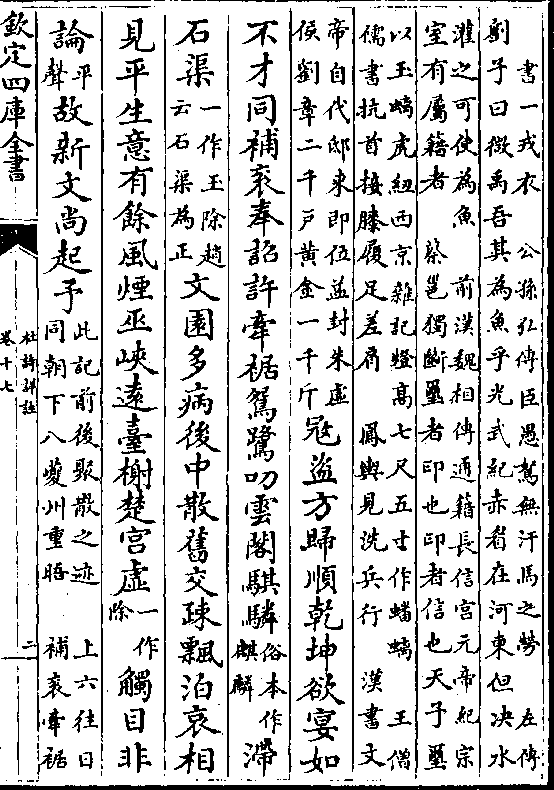 書一戎衣　公孫弘傳臣愚駑無汗馬之勞　左傳
劉子曰微禹吾其為魚乎光武紀赤眉在河東但决水
灌之可使為魚　前漢魏相傳通籍長信宮元帝紀宗
室有屬籍者　蔡邕獨斷璽者印也印者信也天子璽
以玉螭虎紐西京雜記燈髙七尺五寸作蟠螭　王僧
儒書抗首接膝履足差肩　鳳輿見洗兵行　漢書文
帝自代邸來即位益封朱虛
侯劉章二千戸黄金一千斤
冦盗方歸順乾坤欲宴如
不才同補衮奉詔許牽裾鴛鷺叨雲閣騏驎
俗本作
麒麟
滯
石渠
一作玉除趙
云石渠為正
文園多病後中散舊交疎飄泊哀相
見平生意有餘風煙巫峽遠臺榭楚宮虛
一作
除
觸目非
論
平
聲
故新文尚起予
此記前後聚散之迹　上六往日
同朝下八夔州重晤　補衮牽裾
欽定四庫全書
杜詩詳註
卷十七
二